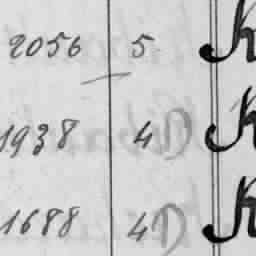 2056 5 K
1938 4 D K
1688 4 D K